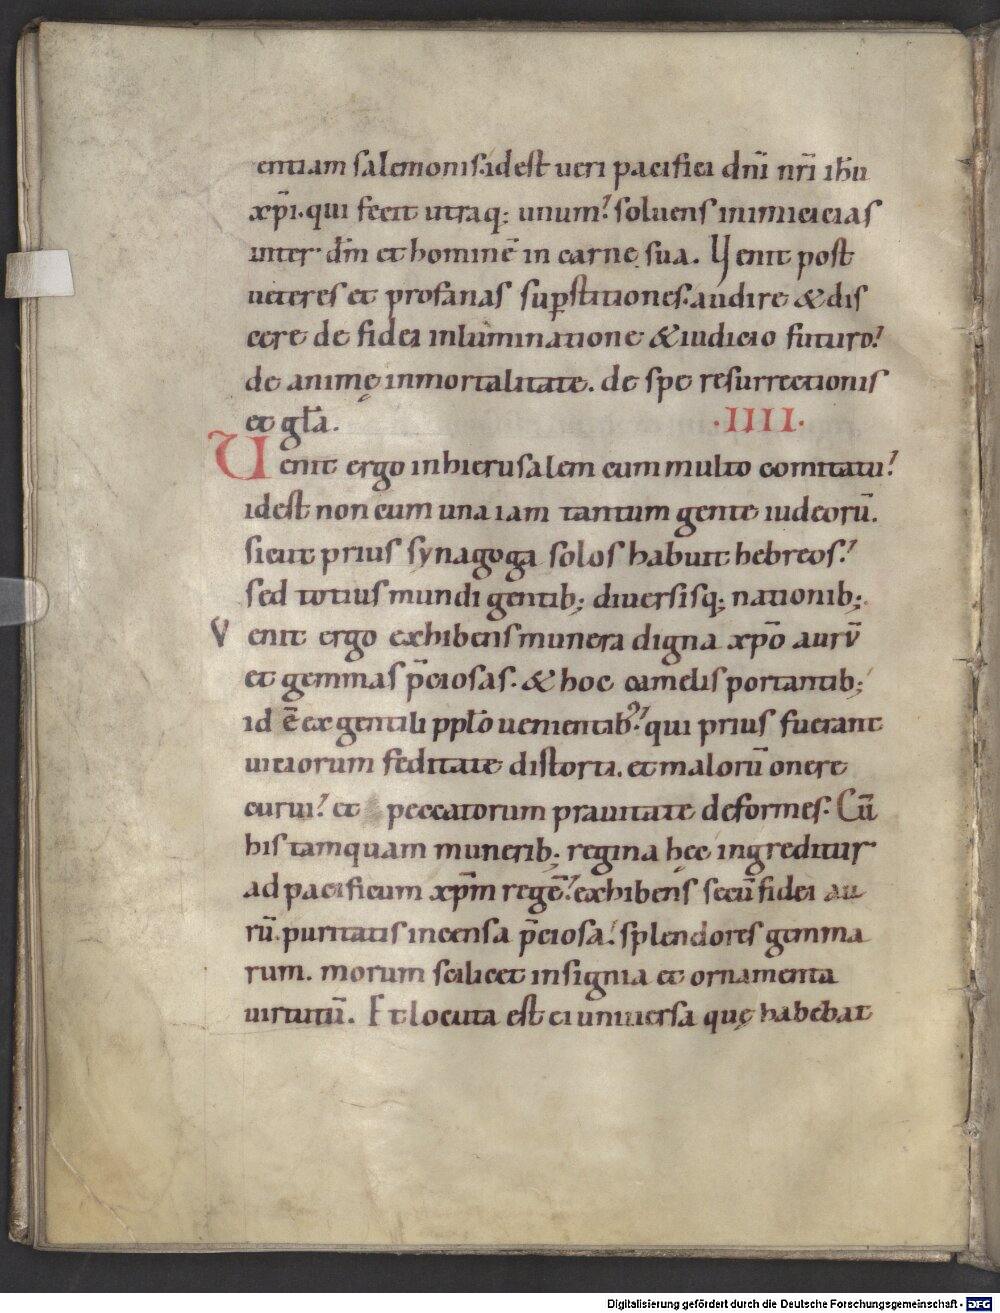 entiam salemonis. idest ueri pacifici dn̄i nr̄i ih̄u
xp̄i. qui fecit utraq; unum? soluens inimicicias
inter dm̄ et hominē in carne sua. Venit post
ueteres et profanas sup̱stitiones. audire & dis
cere de fidei inluminatione & iudicio futuro?
de animę inmortalitate. de spe resurrectionis
et gl̄a. .IIII.
Uenit ergo inhierusalem cum multo comitatu?
idest non cum una iam tantum gente iudeorū.
sicut prius synagoga solos habuit hebreos?
sed totius mundi gentib; diuersisq; nationib;.
Venit ergo exhibens munera digna xp̄o aurū
et gemmas p̄ciosas. & hoc camelis portantib;
id ē ex gentili ppl̄o uenientib; qui prius fuerant
uiciorum feditate distorti. et malorū onere
curui? et peccatorum prauitate deformes. Cū
his tamquam munerib; regina hęc ingreditur
ad pacificum xp̄m regē? exhibens secū fidei au
rū. puritatis incensa p̄ciosa. splendores gemma
rum. morum scilicet insignia et ornamenta
uirtutū. Et locuta est ei uniuersa quę habebat
Digitalisierung gefördert durch die Deutsche Forschungsgemeinschaft - DFG